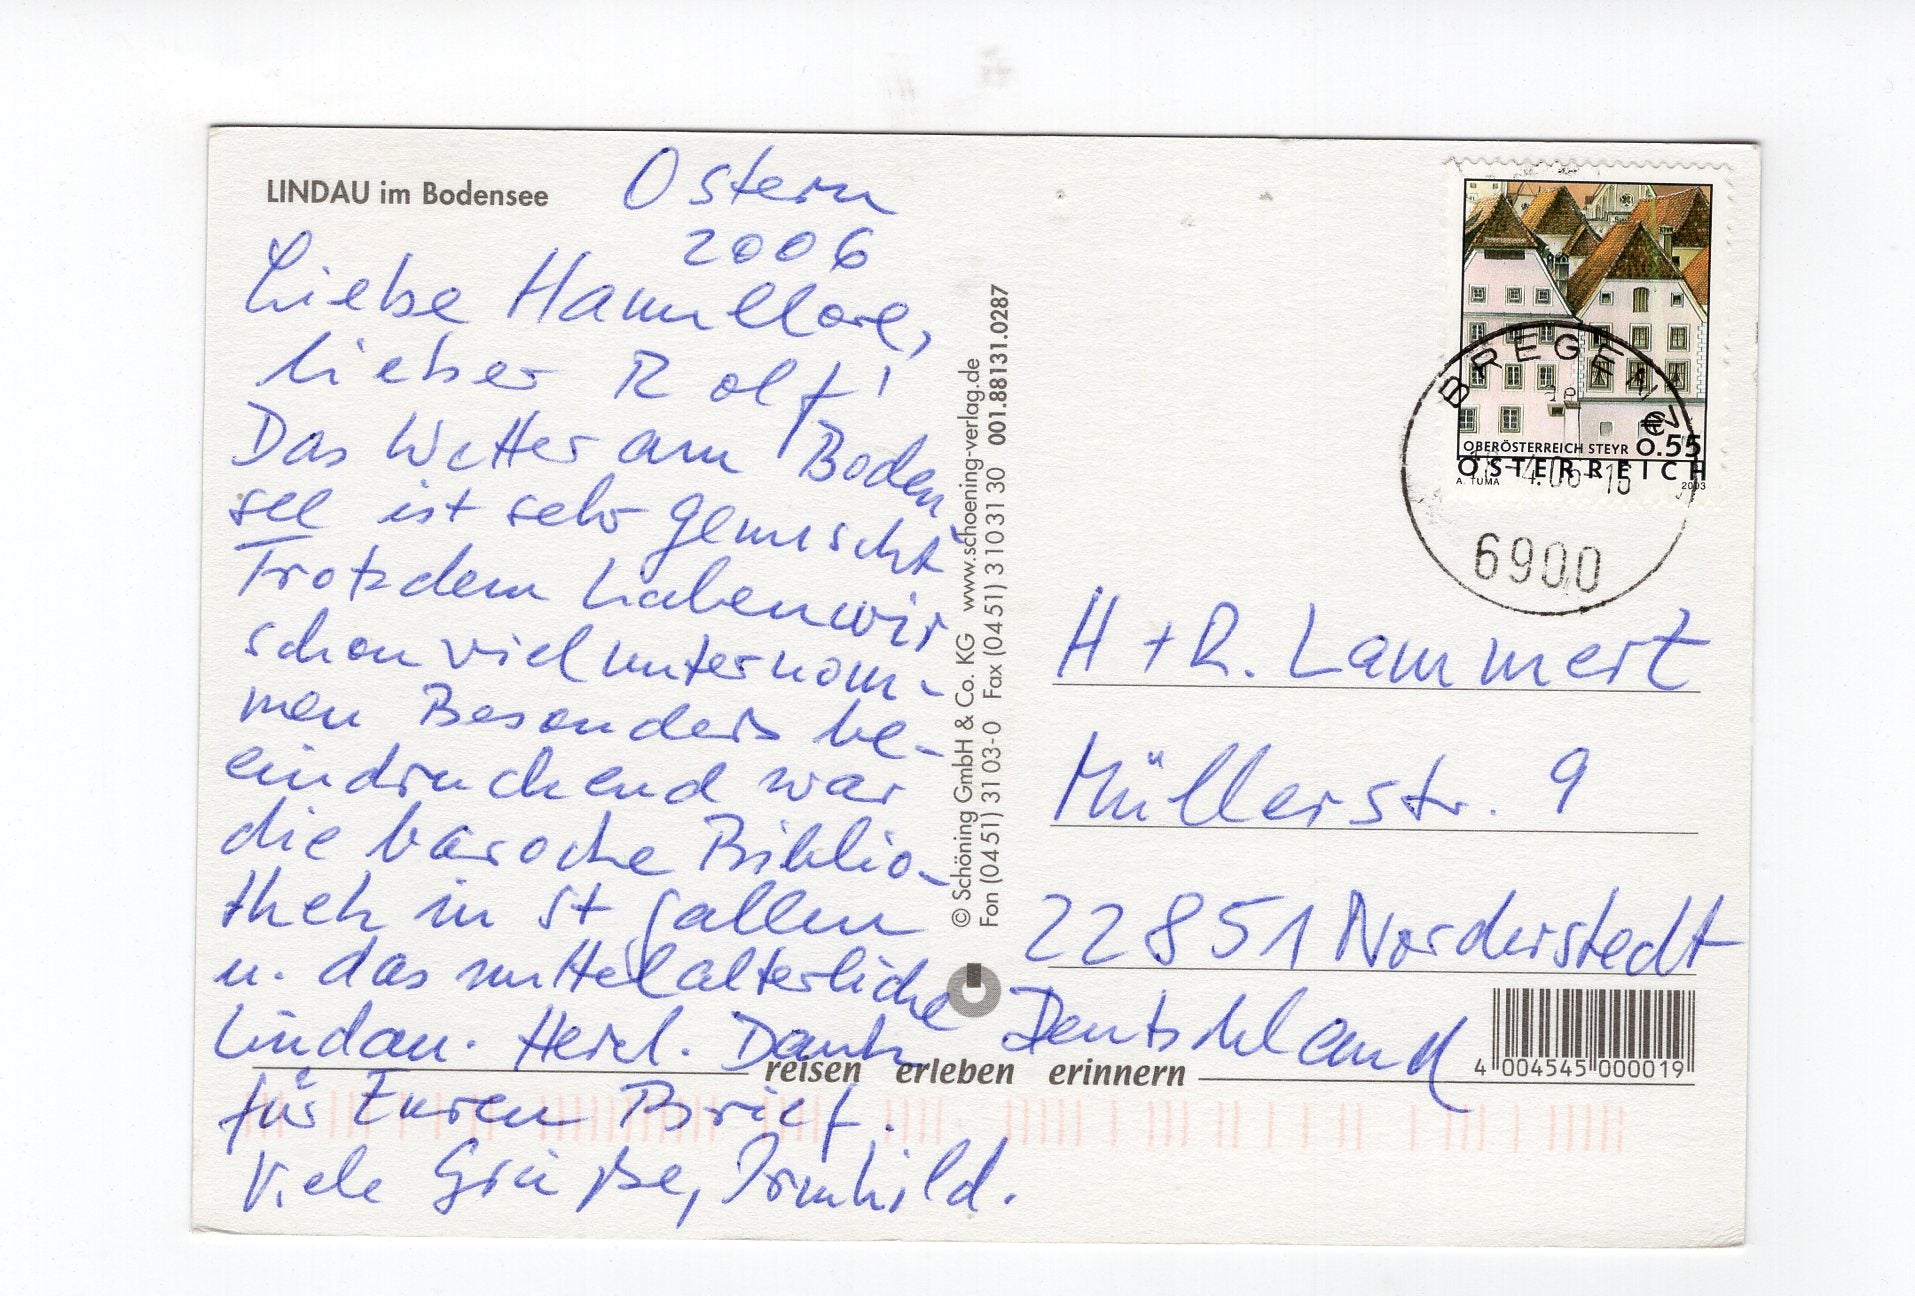 LINDAU im Bodensee
Ostern
2006
Liebe Hannelore,
lieber Rolf!
Das Wetter am Boden-
see ist sehr gemischt
Trotzdem haben wir
schon viel unternom-
men Besonders be-
eindruckend war
die barocke Biblio-
thek in St Gallen
u. das mittelalterliche
Lindau. Herzl. Dank
für Euren Brief.
Viele Grüße, Irmhild.
© Schöning GmbH & Co. KG www.schoening-verlag.de
Fon (04 51) 31 03-0 Fax (04 51) 3 10 31 30 001.88131.0287
reisen erleben erinnern
OBERÖSTERREICH STEYR
€ 0.55
ÖSTERREICH
A. TUMA 2003
BREGENZ
4.06-15
6900
H + R. Lammert
Müllerstr. 9
22851 Norderstedt
Deutschland
4 004545 000019